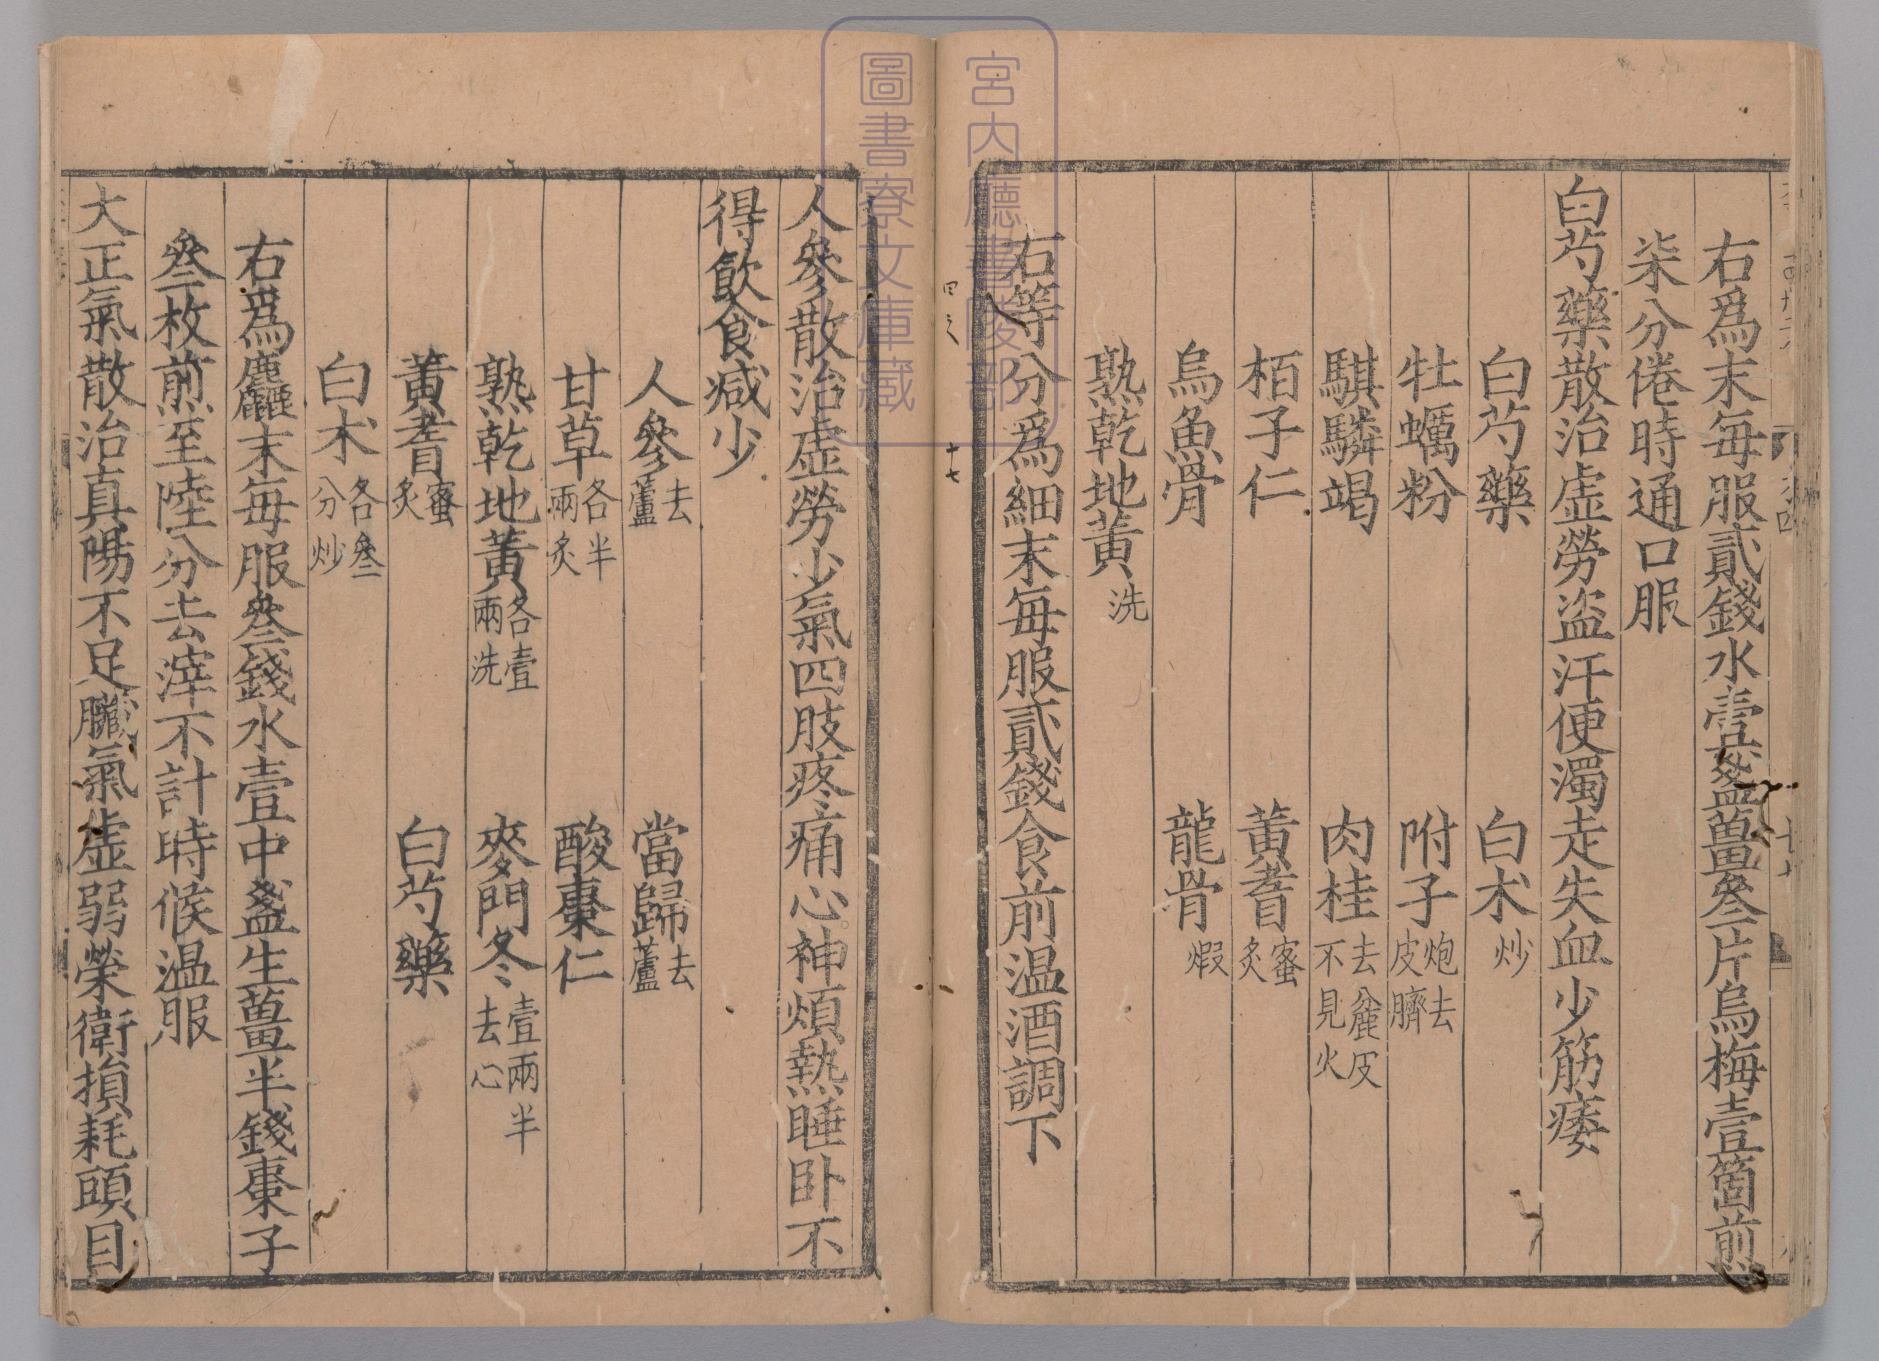 右爲末每服貳錢水壹盞薑叁片烏梅壹箇煎
柒分倦時通口服
白芍藥散治虛勞盜汗便濁走失血少筋痿
白芍藥 白朮炒
牡蠣粉 附子炮去皮臍
騏驎竭 肉桂去麄皮不見火
栢子仁 黃耆蜜炙
烏魚骨 龍骨煆
熟乾地黃洗
右等分爲細末每服貳錢食前温酒調下
四之八
十七
人參散治虛勞少氣四肢疼痛心神煩熱睡卧不
得飲食减少
人參去蘆 當歸去蘆
甘草各半兩炙 酸棗仁
熟乾地黃各壹兩洗 麥門冬壹兩半去心
黃耆蜜炙 白芍藥
白朮各叁分炒
右爲麤末每服叁錢水壹中盞生薑半錢棗子
叁枚煎至陸分去滓不計時候温服
大正氣散治真陽不足臟氣虛弱榮衛損耗頭目
宮内廳書陵部
圖書寮文庫藏